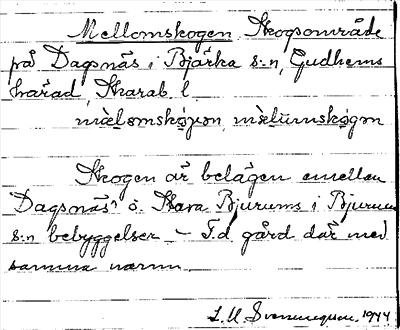 Mellomskogen Skogsområde
på Dagsnäs i Bjärka s:n, Gudhems
härad, Skarab. l
Skogen är belägen emellan
Dagsnäs' o. Stora Bjurums i Bjurums
s:n bebyggelser – F.d. gård där med
samma namn
1944